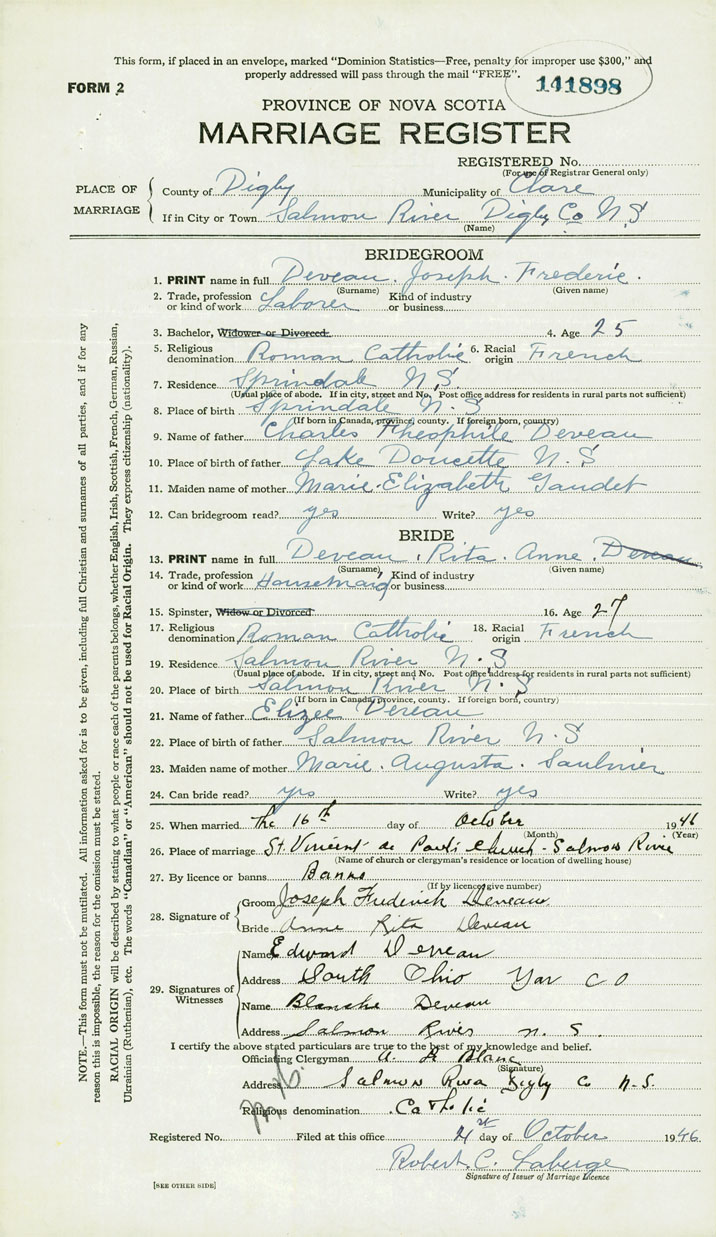 This form, if placed in an envelope, marked "Dominion Statistics—Free, penalty for improper use $300," and
properly addressed will pass through the mail "FREE".
FORM 2
141898
PROVINCE OF NOVA SCOTIA
MARRIAGE REGISTER
REGISTERED No.
(For use of Registrar General only)
PLACE OF MARRIAGE
County of Digby Municipality of Clare
If in City or Town Salmon River Digby Co N.S
(Name)
BRIDEGROOM
1. PRINT name in full Deveau. Joseph. Frederic.
(Surname) (Given name)
2. Trade, profession or kind of work Laborer Kind of industry or business
3. Bachelor, Widower or Divorced. 4. Age 25
5. Religious denomination Roman Catholic 6. Racial origin French
7. Residence Sprindale N.S
(Usual place of abode. If in city, street and No. Post office address for residents in rural parts not sufficient)
8. Place of birth Sprindale N.S
(If born in Canada, province, county. If foreign born, country)
9. Name of father Charles Theophile Deveau
10. Place of birth of father Lake Doucette N.S
11. Maiden name of mother Marie Elizabeth Gaudet
12. Can bridegroom read? yes Write? yes
BRIDE
13. PRINT name in full Deveau, Rita. Anne. Deveau
(Surname) (Given name)
14. Trade, profession or kind of work Housemaid Kind of industry or business
15. Spinster, Widow or Divorced 16. Age 27
17. Religious denomination Roman Catholic 18. Racial origin French
19. Residence Salmon River N.S
(Usual place of abode. If in city, street and No. Post office address for residents in rural parts not sufficient)
20. Place of birth Salmon River N.S
(If born in Canada, province, county. If foreign born, country)
21. Name of father Elizee Deveau
22. Place of birth of father Salmon River N.S
23. Maiden name of mother Marie. Augusta. Saulnier
24. Can bride read? yes Write? yes
25. When married The 16th day of October 1946
(Month) (Year)
26. Place of marriage St. Vincent de Paul Church - Salmon River
(Name of church or clergyman's residence or location of dwelling house)
27. By licence or banns Banns
(If by licence give number)
28. Signature of
Groom Joseph Frederick Deveau
Bride Anne Rita Deveau
29. Signatures of Witnesses
Name Edward Deveau
Address South Ohio Yar CO
Name Blanche Deveau
Address Salmon River N.S.
I certify the above stated particulars are true to the best of my knowledge and belief.
Officiating Clergyman Blanc
(Signature)
Address Salmon River Digby Co N.S.
Religious denomination Catholic
Registered No. Filed at this office day of October 1946.
Robert C. Laberge
Signature of Issuer of Marriage Licence
[SEE OTHER SIDE]
NOTE.—This form must not be mutilated. All information asked for is to be given, including full Christian and surnames of all parties, and if for any
reason this is impossible, the reason for the omission must be stated.
RACIAL ORIGIN will be described by stating to what people or race each of the parents belongs, whether English, Irish, Scottish, French, German, Russian,
Ukrainian (Ruthenian), etc. The words "Canadian" or "American" should not be used for Racial Origin. They express citizenship (nationality).